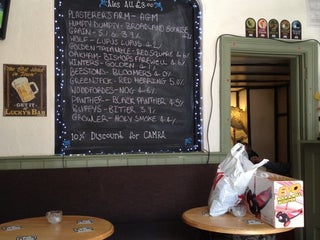 Ales All £3.00
PLASTERERS ARM - AGM
HUMPTY DUMPTY - BROADLAND SUNRISE
GRAIN - 3.1.6 3.9%
WOLF - LUPUS LUPUS 4.2%
GOLDEN TRIANGLE - RED SQUARE 4.
OAKHAM - BISHOPS FAREWELL 4.6%
WINTERS - GOLDEN 4.1%
BEESTONS - BLOOMERS 4.0%
GREEN JACK - RED HERRING 5.0%
WOODFORDES - NOG 4.6%
PANTHER - BLACK PANTHER 4.5%
BITTER 3.9%
GROWLER - HOLY SMOKE 4.4%
10% Discount for CAMRA
GET IT
LUCKY'S BAR